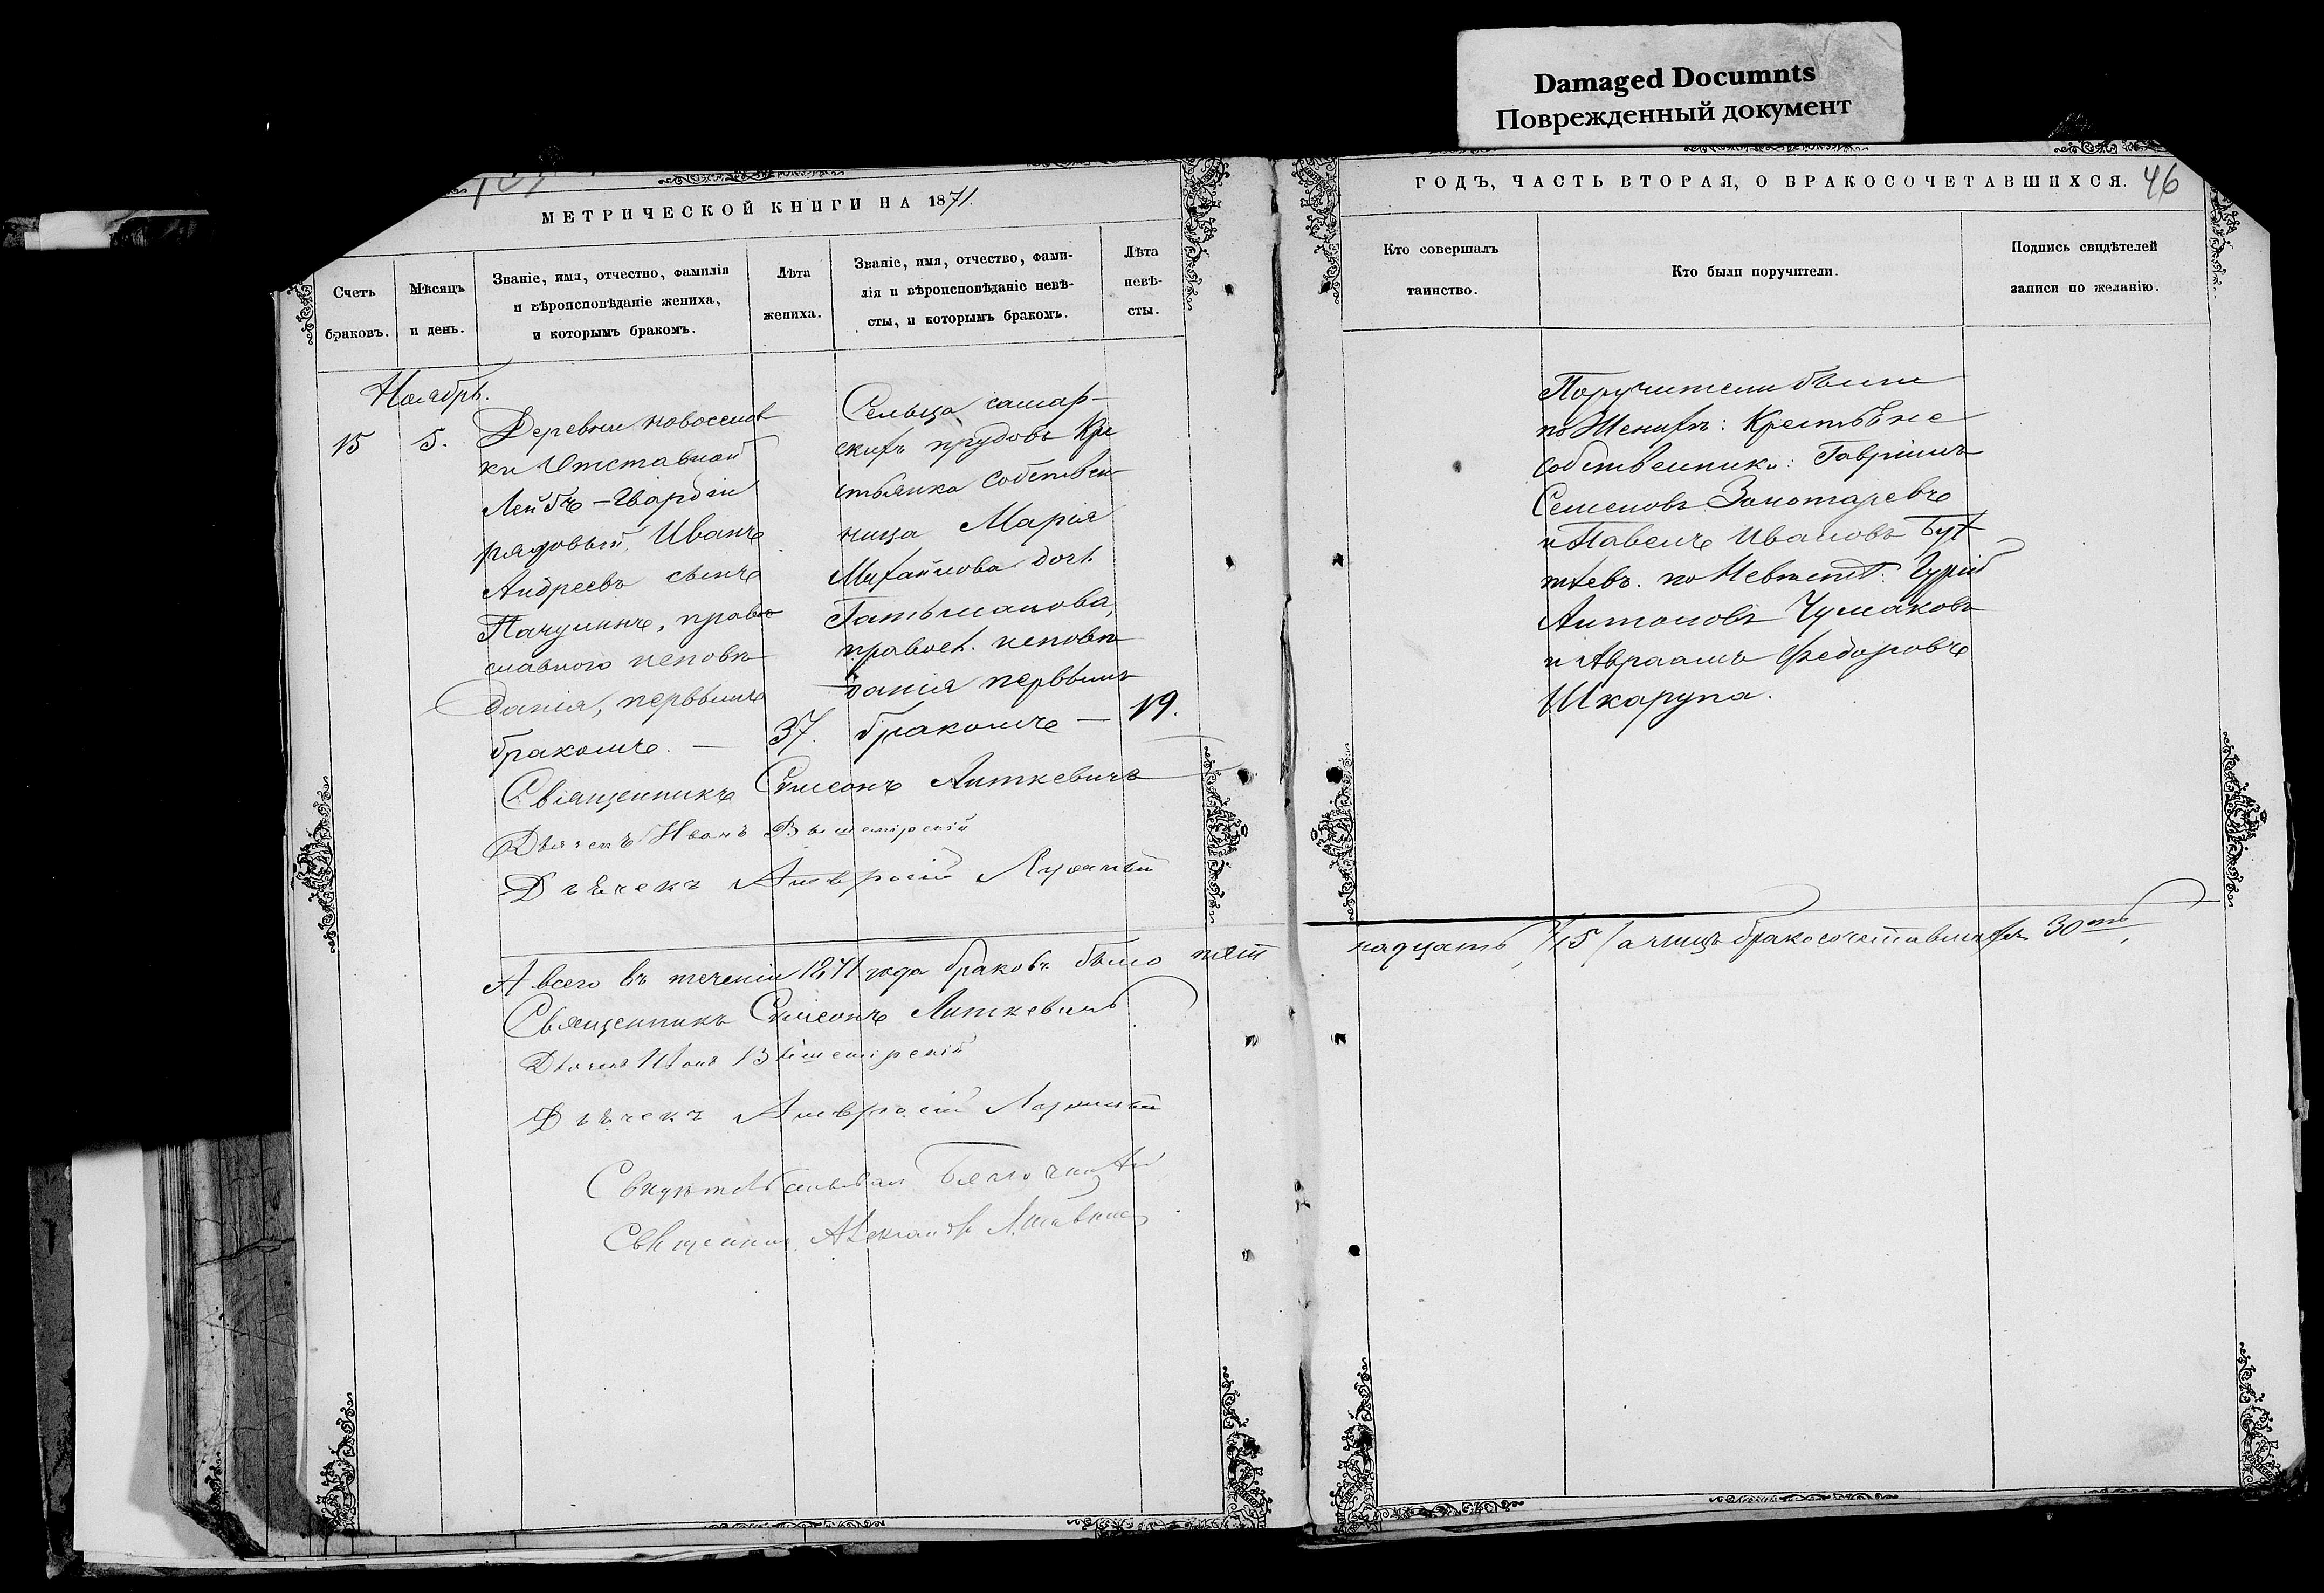 Damaged Documnts
Поврежденный документ
МЕТРИЧЕСКОЙ КНИГИ НА 1871.
Счетъ браковъ.
Мѣсяцъ и день.
Званіе, имя, отчество, фамилія
и вѣроисповѣданіе жениха,
и которымъ бракомъ.
Лѣта жениха.
Званіе, имя, отчество, фами-
лія и вѣроисповѣданіе невѣ-
сты, и которымъ бракомъ.
Лѣта
невѣ-
сты.
Ноябрь.
15
5.
Деревни новоселов
ки Отставной
Лейбъ-Гвардіи
рядовый Иванъ
Андреевъ сынъ
православного исповѣ
данія, первымъ
бракомъ. —
37.
Сельца самар-
скихъ прудовъ Кре
стьянка собствен
ница Марія
Михайлова доч.
Гатьманова,
правосл. исповѣ
данія первымъ
бракомъ —
19.
Священникъ Симеонъ Литкевичъ
Дьячекъ Иванъ
Дьячекъ Амвросій
А всего въ теченіи 1871 года браковъ было пят
Священникъ Симеонъ Литкевичъ
Дьячекъ
Дьячекъ Амвросій
Священникъ Александръ
ГОДЪ, ЧАСТЬ ВТОРАЯ, О БРАКОСОЧЕТАВШИХСЯ.
46
Кто совершалъ
таинство.
Кто были поручители.
Подпись свидѣтелей
записи по желанію.
Поручители были
по Женихѣ: Крестьяне
собственники: Гавріилъ
Семеновъ Золотаревъ
и Павелъ Ивановъ
по Невѣстѣ: Гурій
Антоновъ Чумаковъ
и Авраамъ Федоровъ
Шкарупа.
надцать /15/ а лицъ бракосочетавшихся 30ть